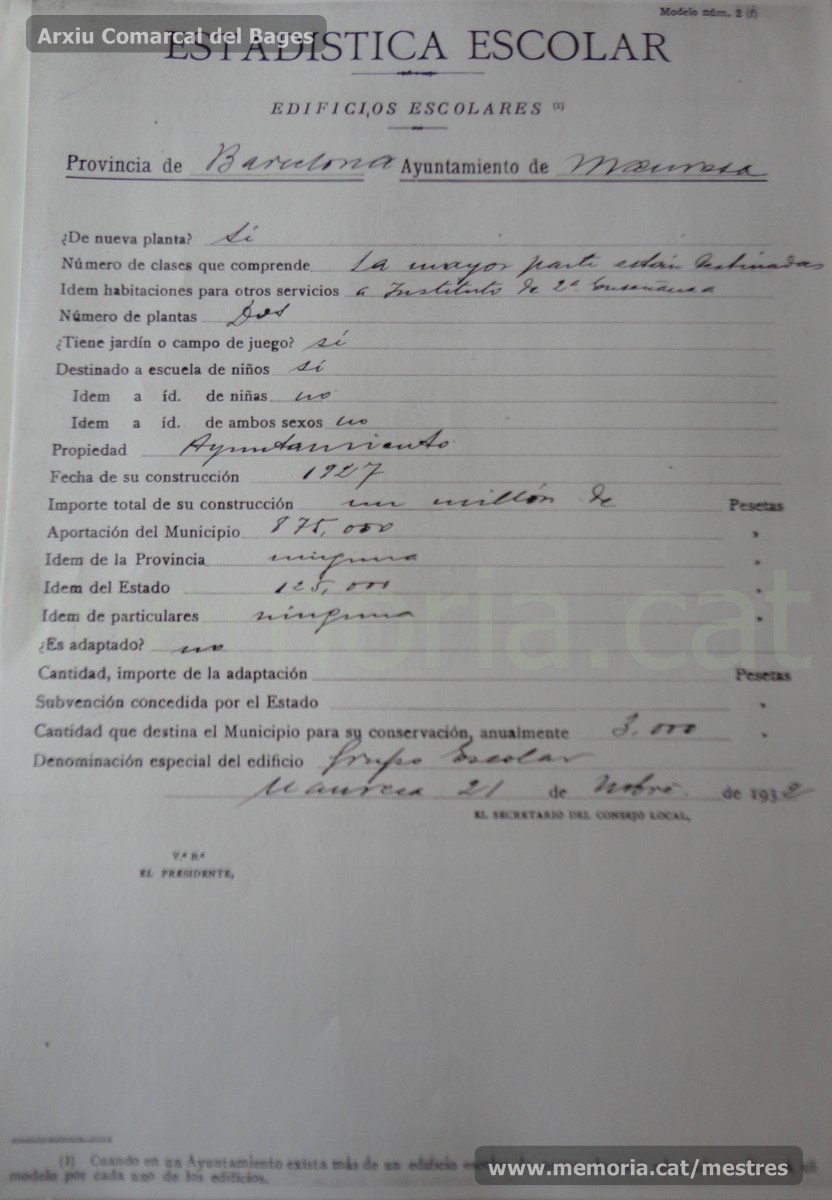 Modelo núm. 2 (f)
Arxiu Comarcal del Bages
ESTADISTICA ESCOLAR
EDIFICIOS ESCOLARES (1)
Provincia de Barcelona Ayuntamiento de Manresa
¿De nueva planta? Sí
Número de clases que comprende La mayor parte están destinadas
Idem habitaciones para otros servicios a Instituto de 2ª Enseñanza
Número de plantas Dos
¿Tiene jardín o campo de juego? sí
Destinado a escuela de niños sí
Idem a íd. de niñas no
Idem a íd. de ambos sexos no
Propiedad Ayuntamiento
Fecha de su construcción 1927
Importe total de su construcción un millón de Pesetas
Aportación del Municipio 875,000 »
Idem de la Provincia ninguna »
Idem del Estado 125,000 »
Idem de particulares ninguna »
¿Es adaptado? no
Cantidad, importe de la adaptación Pesetas
Subvención concedida por el Estado »
Cantidad que destina el Municipio para su conservación, anualmente 3.000 »
Denominación especial del edificio Grupo Escolar
Manresa 21 de Nobre. de 1932
EL SECRETARIO DEL CONSEJO LOCAL,
V.º B.º
EL PRESIDENTE,
memoria.cat
(1) Cuando en un Ayuntamiento exista más de un edificio
modelo por cada uno de los edificios.
www.memoria.cat/mestres